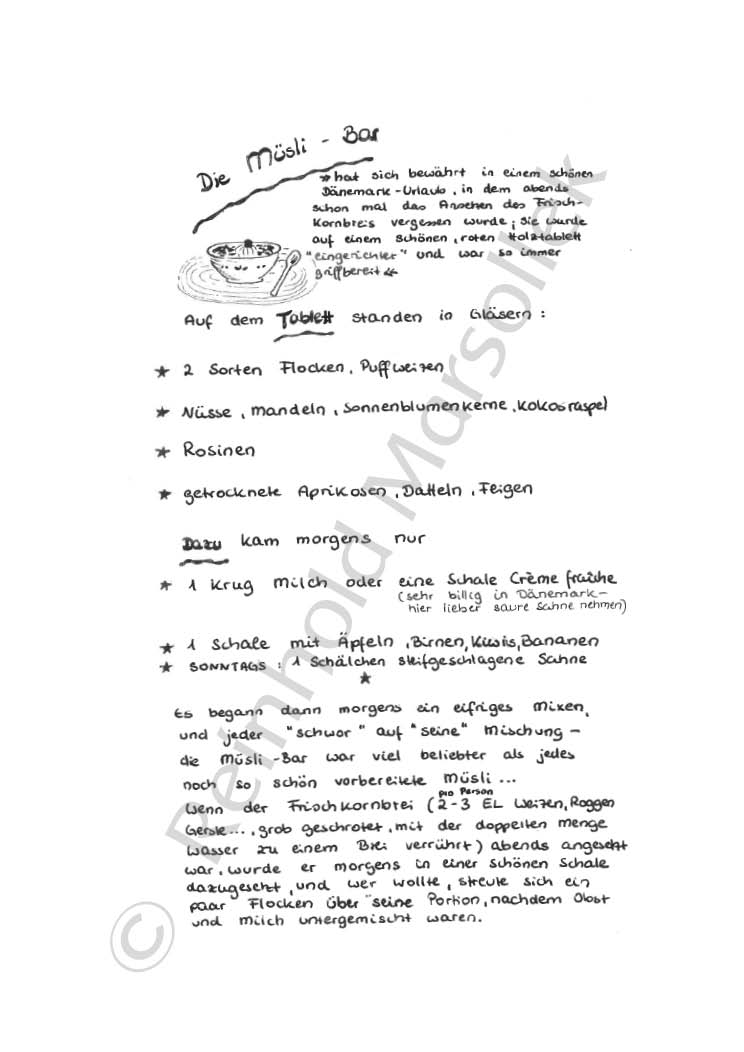 Die Müsli - Bar
hat sich bewährt in einem schönen
Dänemark-Urlaub, in dem abends
schon mal das Ansehen des Frisch-
Kornbreis vergessen wurde; sie wurde
auf einem schönen, roten Holztablett
"eingerichtet" und war so immer
griffbereit
Auf dem Tablett standen in Gläsern:
★ 2 Sorten Flocken, Puffweizen
★ Nüsse, Mandeln, Sonnenblumenkerne, Kokosraspel
★ Rosinen
★ getrocknete Aprikosen, Datteln, Feigen
Dazu kam morgens nur
★ 1 Krug Milch oder eine Schale Crème fraîche
(sehr billig in Dänemark-
hier lieber saure Sahne nehmen)
★ 1 Schale mit Äpfeln, Birnen, Kiwis, Bananen
★ SONNTAGS: 1 Schälchen steifgeschlagene Sahne
★
Es begann dann morgens ein eifriges Mixen,
und jeder "schwor" auf "seine" Mischung -
die Müsli-Bar war viel beliebter als jedes
noch so schön vorbereitete Müsli...
pro Person
Wenn der Frischkornbrei (2-3 EL Weizen, Roggen
Gerste..., grob geschrotet, mit der doppelten Menge
Wasser zu einem Brei verrührt) abends angesetzt
war, wurde er morgens in einer schönen Schale
dazugesetzt, und wer wollte, streute sich ein
paar Flocken über seine Portion, nachdem Obst
und Milch untergemischt waren.
© Reinhold Marsollek